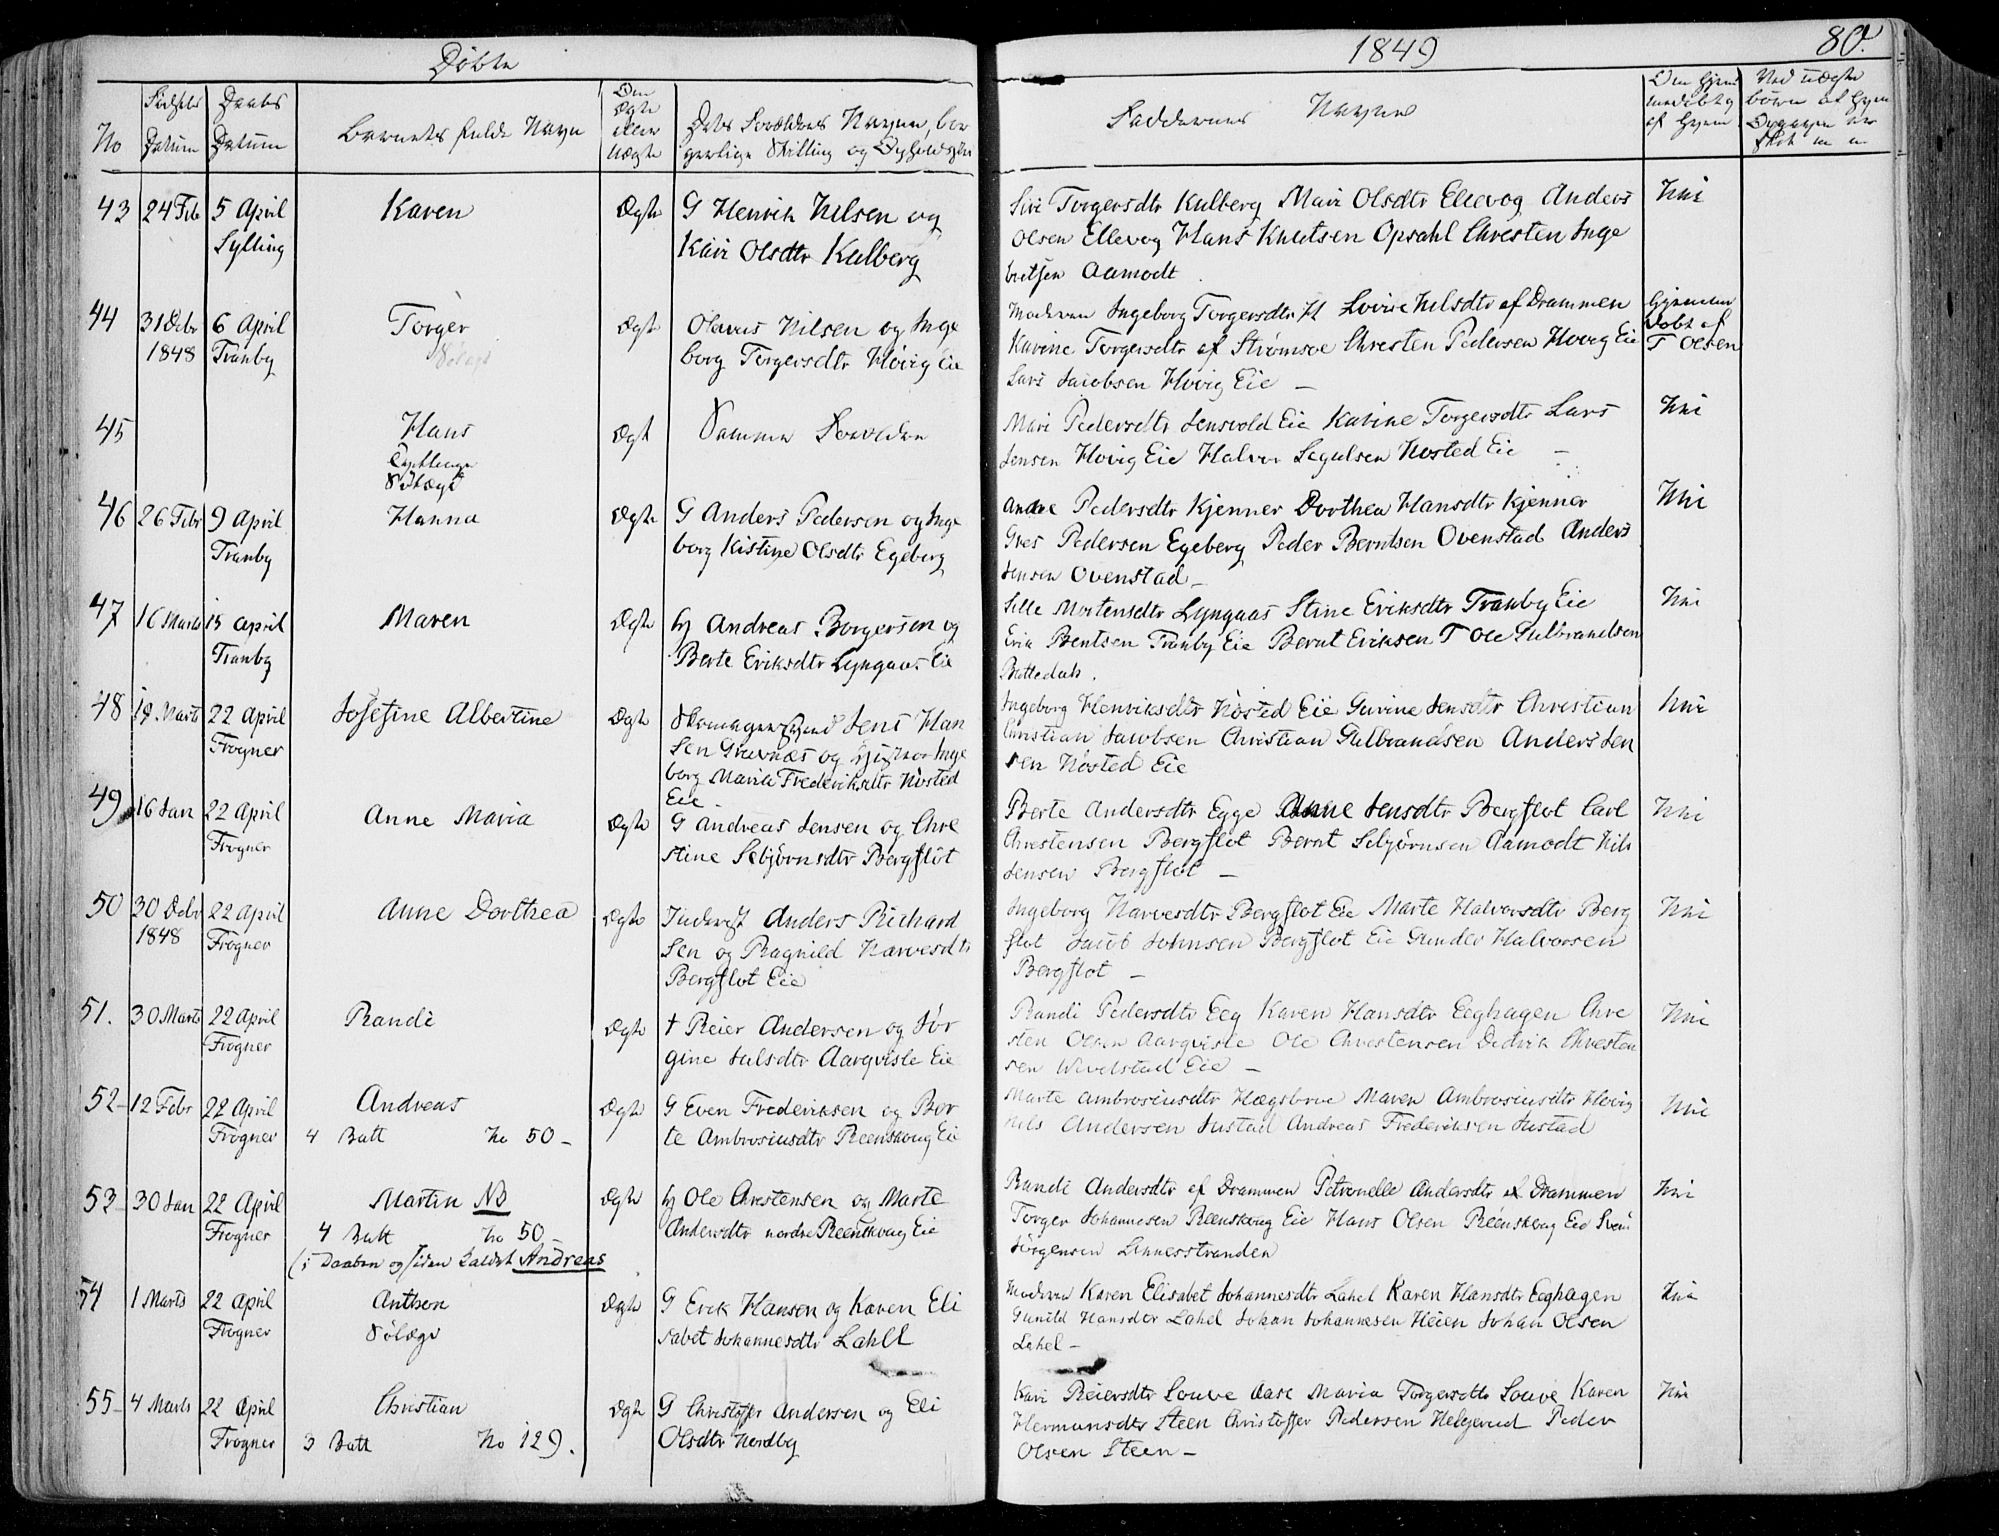 Døbte
1849
80.
No
Fødsels Datum
Daabs Datum
Barnets fulde Navn
Om ægte eller uægte
Dets Forældres Navne, bor
gerlige Stilling og Opholdsste
Faddernes Navne
Om hjem
medebt
af hvem
Ved uægte
børn af hvem
43 24 Feb 5 April Karen Ægte G Henrik Nilsen og
Sylling Kari Olsdtr Kulberg
Siri Torgersdtr Kulberg Mari Olsdtr Ellevog Anders Nei
Olsen Ellevog Hans Knutsen Opsahl Christen Inge
bretsen Aamodt
44 31 Debr 6 April Torger Ægte Olavus Nilsen og Inge
1848 Tranby borg Torgersdtr Høvig Eie
Moderen Ingeborg Torgersdtr H Lovise Nilsdtr af Drammen Hjemme
Karine Torgersdtr af Strømsoe Christen Pedersen Hovig Eie
Døbt af
T Olsen
Lars Jacobsen Høvig Eie —
45 Hans Ægt Samme Forældre
Mari Pedersdtr Jensvold Eie Karine Torgersdtr Lars Nei
Jensen Hovig Eie Halvor Segulsen Nosted Eie —
46 26 Febr 9 April Hanna Ægte G Anders Pedersen og Inge
Tranby borg Kistine Olsdtr Egeberg
Anne Pedersdtr Kjenner Dorthea Hansdtr Kjenner Nei
Gres Pedersen Egeberg Peder Berntsen Ovenstad Anders
Jensen Ovenstad —
47 16 Marts 15 April Maren Ægte Hj Andreas Borgersen og
Tranby Berte Eriksdtr Lyngaas Eie
Sille Mortensdtr Lyngaas Stine Eriksdtr Tranby Eie Nei
Erik Bentsen Tranby Eie Bernt Eriksen T Ole Gulbrandsen
48 19 Marts 22 April Josefine Albertine Ægte Jens Han
Frogner sen Grevnæs og Inge
borg Maria Frederiksdtr Nøsted
Eie
Ingeborg Henriksdtr Nøsted Eie Gurine Jensdtr Christian Nei
Christian Jacobsen Christian Gulbrandsen Anders Jen
sen Nosted Eie
49 16 Jan 22 April Anne Maria Ægte G Andreas Jensen og Chri
Frogner stine Sebjørnsdtr Bergflot
Berte Andersdtr Egge Anne Jensdtr Bergflot Carl Nei
Christensen Bergflot Bernt Sebjørnsen Aamodt Nils
Jensen Bergflot —
50 30 Debr 22 April Anne Dorthea Ægte Inderst Anders Richard
1848 Frogner sen og Ragnild Narvesdtr
Bergflot Eie
Ingeborg Narvesdtr Bergflot Eie Marte Halvorsdtr Berg Nei
flot Jacob Johnsen Bergflot Eie Gunder Halvorsen
Bergflot —
51. 30 Marts 22 April Randi Ægte † Reier Andersen og Jør
Frogner gine Julsdtr Aarqvisle Eie
Randi Pedersdtr Eeg Karen Hansdtr Eeghagen Chri Nei
sten Olsen Aarqvisle Ole Christensen Didrik Christen
sen Wivelstad Eie —
52 12 Febr 22 April Andreas Ægte G Even Frederiksen og Ber
Frogner 4 Batt No 50 — te Ambrosiusdtr Reenskoug Eie
Marte Ambrosiusdtr Hægsbroe Maren Ambrosiusdtr Hovig Nei
Nils Andersen Justad Andreas Frederiksen Justad
53 30 Jan 22 April Martin NB Ægte Hj Ole Christensen og Marte
Frogner 4 Batt No 50 — Andersdtr nordre Reenskoug Eie
(i Daaben og siden kaldet Andreas
Randi Andersdtr af Drammen Petronelle Andersdtr af Drammen Nei
Torger Johannesen Reenskoug Eie Hans Olsen Reenskoug Eie Svend
Jørgensen Linnesstranden
54 1 Marts 22 April Anthon Ægte G Erik Hansen og Karen Eli
Frogner Sølægt sabet Johannesdtr Lahel
Moderen Karen Elisabet Johannesdtr Lahel Karen Hansdtr Eeghagen Nei
Gunild Hansdtr Lahel Johan Johannesen Heien Johan Olsen
Lahel —
55 4 Marts 22 April Christian Ægte G Christoffer Andersen og Eli
Frogner 3 Batt No 129. Olsdtr Nordby
Kari Reiersdtr Louve Aase Maria Torgersdtr Louve Karen Nei
Hermansdtr Steen Christoffer Pedersen Helgerud Peder
Olsen Steen —